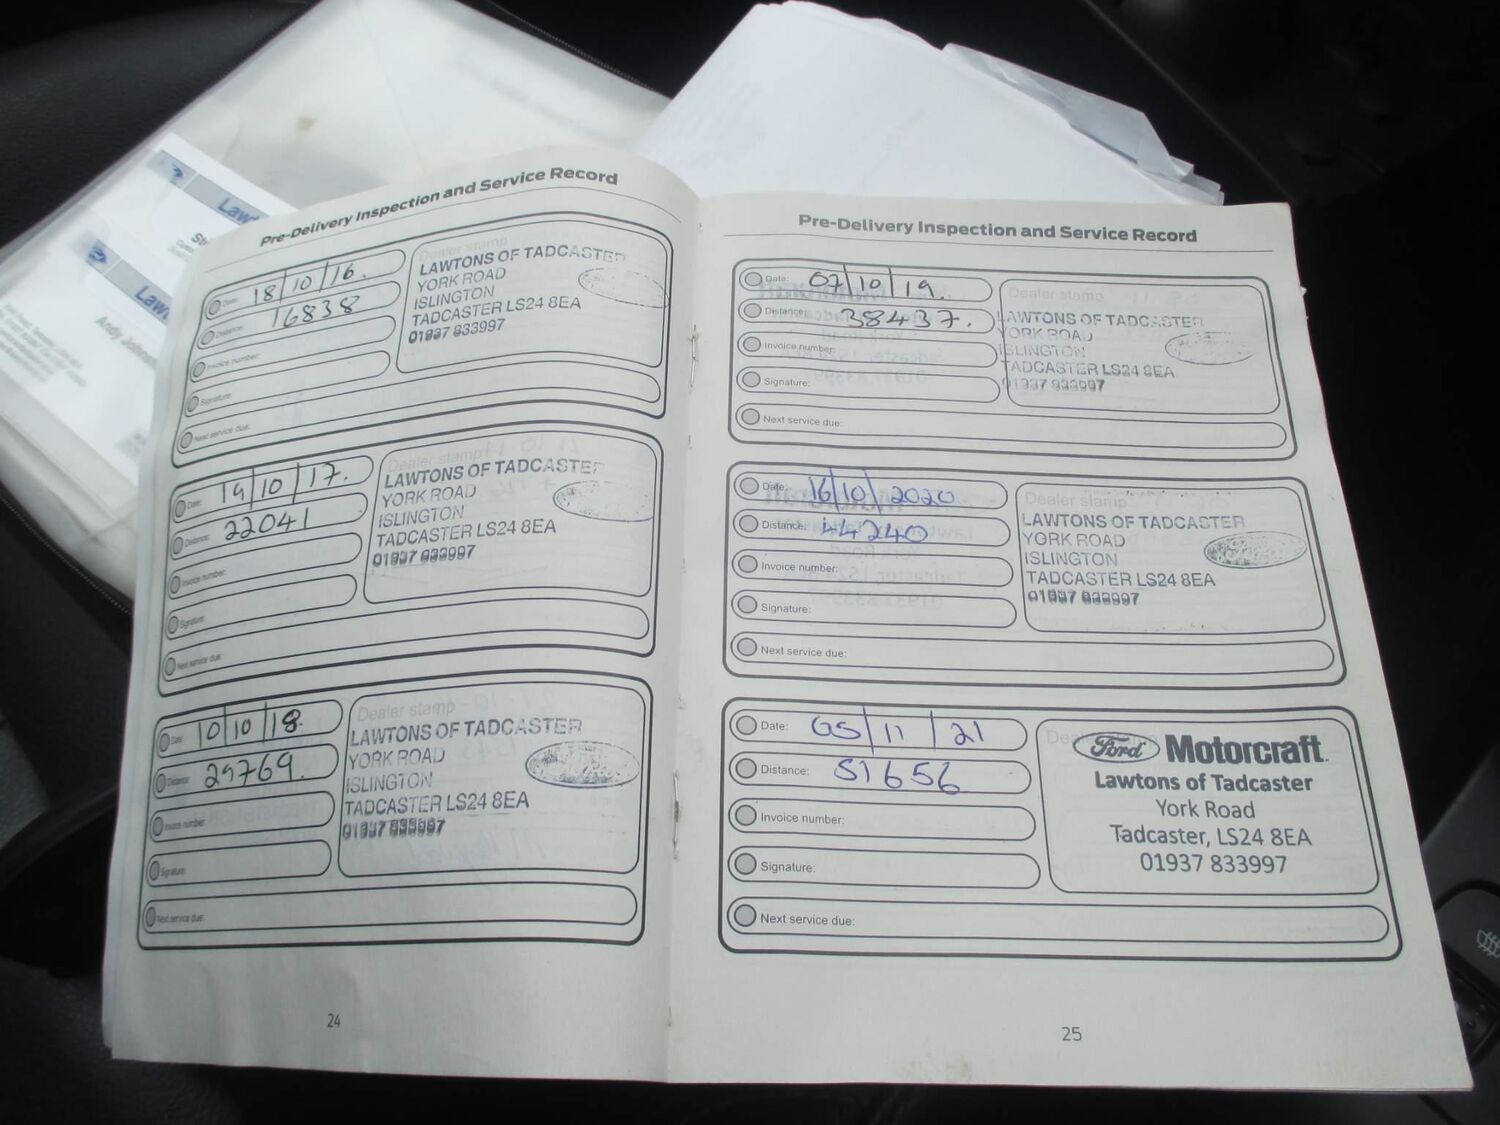 Lawt
Lawt
Andy Johns
Pre-Delivery Inspection and Service Record
Date: 18/10/16.
Distance: 16838
Invoice number:
Signature:
Next service due:
Dealer stamp
LAWTONS OF TADCASTER
YORK ROAD
ISLINGTON
TADCASTER LS24 8EA
01937 833997
Date: 19/10/17.
Distance: 22041
Invoice number:
Signature:
Next service due:
Dealer stamp
LAWTONS OF TADCASTER
YORK ROAD
ISLINGTON
TADCASTER LS24 8EA
01937 833997
Date: 10/10/18.
Distance: 29769.
Invoice number:
Signature:
Next service due:
Dealer stamp
LAWTONS OF TADCASTER
YORK ROAD
ISLINGTON
TADCASTER LS24 8EA
01937 833997
24
Pre-Delivery Inspection and Service Record
Date: 07/10/19.
Distance: 38437.
Invoice number:
Signature:
Next service due:
Dealer stamp
LAWTONS OF TADCASTER
YORK ROAD
ISLINGTON
TADCASTER LS24 8EA
01937 833997
Date: 16/10/2020
Distance: 44240
Invoice number:
Signature:
Next service due:
Dealer stamp
LAWTONS OF TADCASTER
YORK ROAD
ISLINGTON
TADCASTER LS24 8EA
01937 833997
Date: 05/11/21
Distance: 51656
Invoice number:
Signature:
Next service due:
Ford Motorcraft
Lawtons of Tadcaster
York Road
Tadcaster, LS24 8EA
01937 833997
25